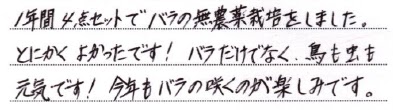 1年間4点セットでバラの無農薬栽培をしました。
とにかくよかったです！バラだけでなく、鳥も虫も
元気です！今年もバラの咲くのが楽しみです。